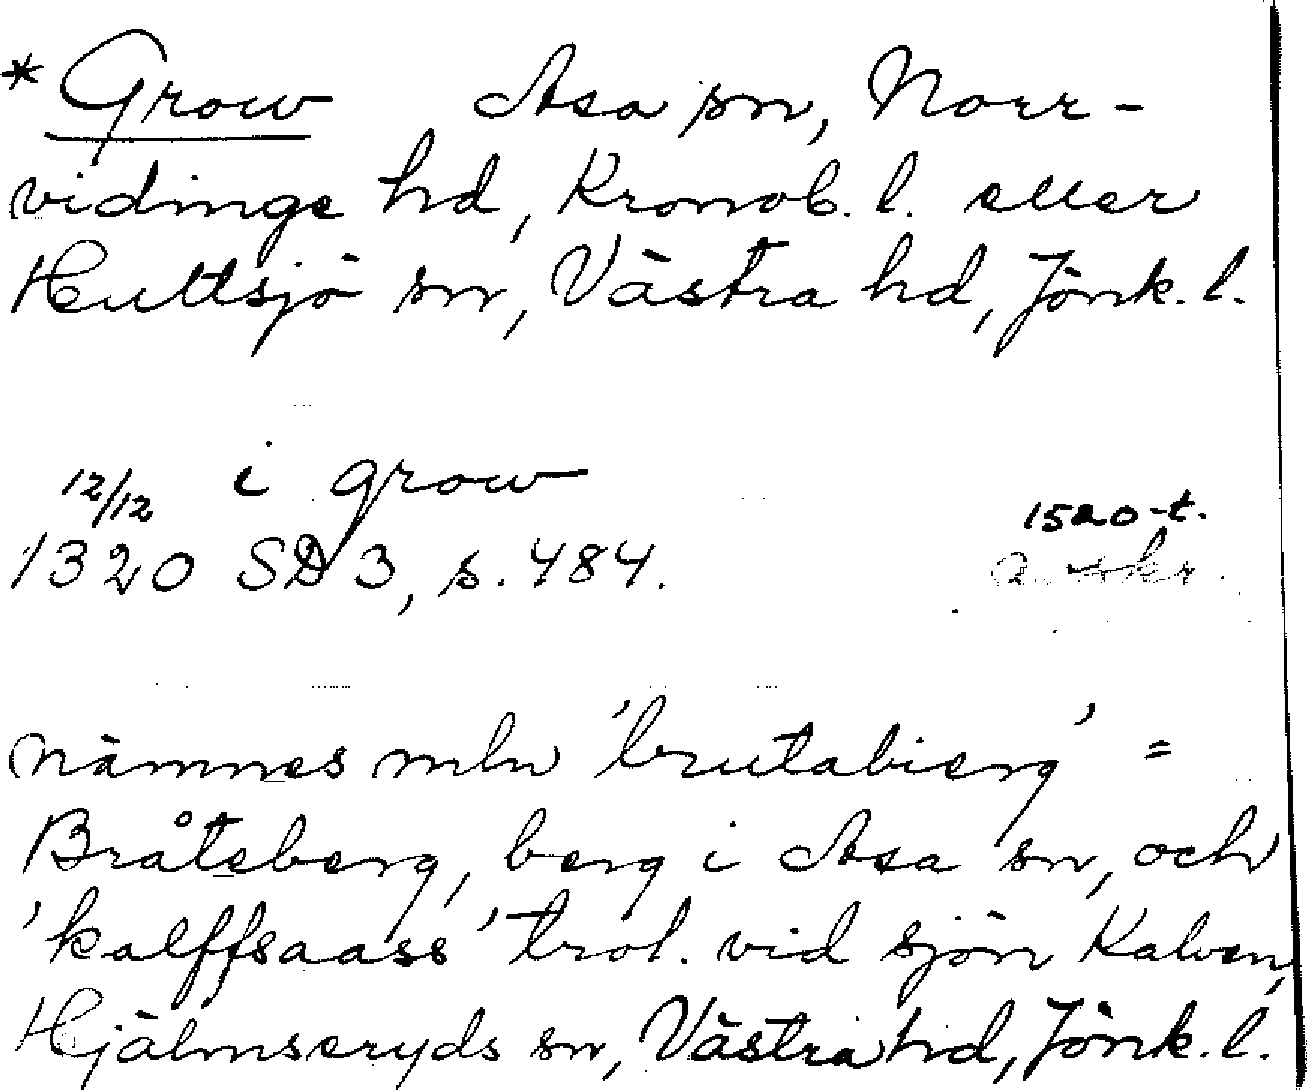 * Grow Asa sn, Norr-
vidinge hd, Kronob. l. eller
Hultsjö sn, Västra hd, Jönk. l.
12/12 i grow
1520-t.
1320 SD 3, s. 484.
a. skr.
nämnes mln 'brutabierg' =
Bråteberg, berg i Asa sn, och
'kalffsaass' trol. vid sjön Kalven,
Hjälmseryds sn, Västra hd, Jönk. l.